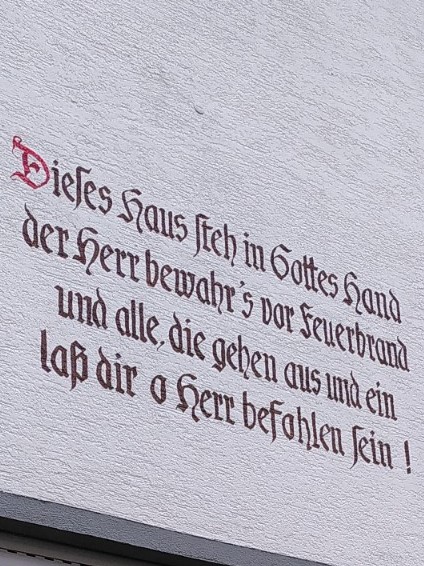 Dieſes Haus ſteh in Gottes Hand
der Herr bewahr's vor Feuerbrand
und alle, die gehen aus und ein
laß dir o Herr befohlen ſein!